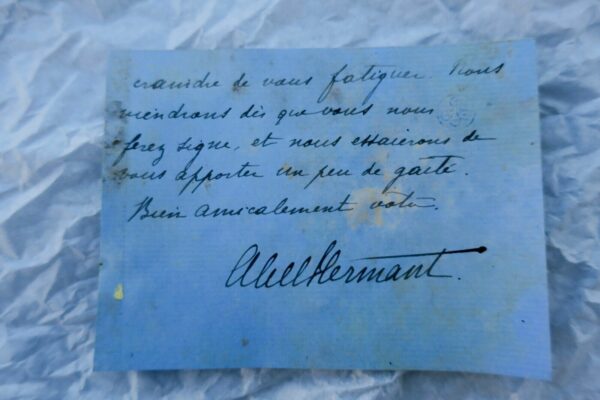 craindre de vous fatiguer. Nous
viendrons dès que vous nous
ferez signe, et nous essaierons de
vous apporter un peu de gaîté.
Bien amicalement vôtre.
Abel Hermant.